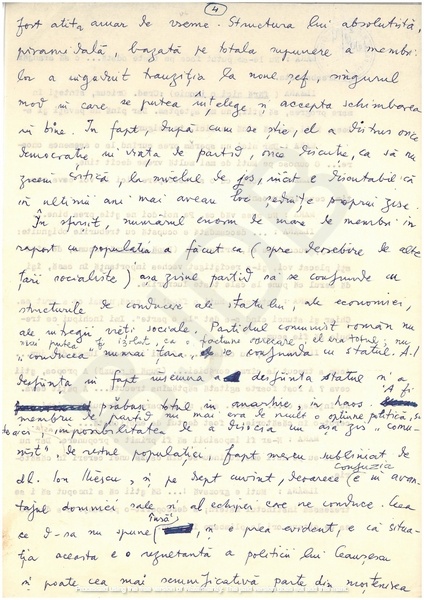 4
fost atîta amar de vreme. Structura lui absolutistă,
piramidală, bazată pe totala supunere a membri-
lor a îngăduit tranziția la noul șef, singurul
mod în care se putea înțelege și accepta schimbarea
în bine. În fapt, după cum se știe, el a distrus orice
democrație în viața de partid, orice discuție, ca să nu
zicem critică, la nivelul de jos, încît e discutabil că
în ultimii ani mai aveau loc ședințe propriu zise.
În sfîrșit, numărul enorm de mare de membri în
raport cu populația a făcut ca (spre deosebire de alte
țări socialiste) așa zisul partid să se confunde cu
structurile de conducere ale statului, ale economiei,
ale întregii vieți sociale. Partidul comunist român nu
nici putea fi izolat, ca o fracțiune oarecare: el era totul; nu
"conducea" numai țara, se confunda cu statul. A-l
desființa în fapt însemna a desființa statul și a
prăbuși totul în anarhie, în haos. A fi
membru de partid nu mai era de mult o opțiune politică, și
de aici imposibilitatea de a disocia un așa zis "comu-
nist", de restul populației, fapt mereu subliniat de
dl. Ion Iliescu, și pe drept cuvînt, deoarece confuzia e în avan-
tajul domniei sale și al echipei care ne conduce. Ceea
ce d-sa nu spune însă, și e prea evident, e că situa-
ția aceasta e o rezultantă a politicii lui Ceaușescu
și poate cea mai semnificativă parte din moștenirea